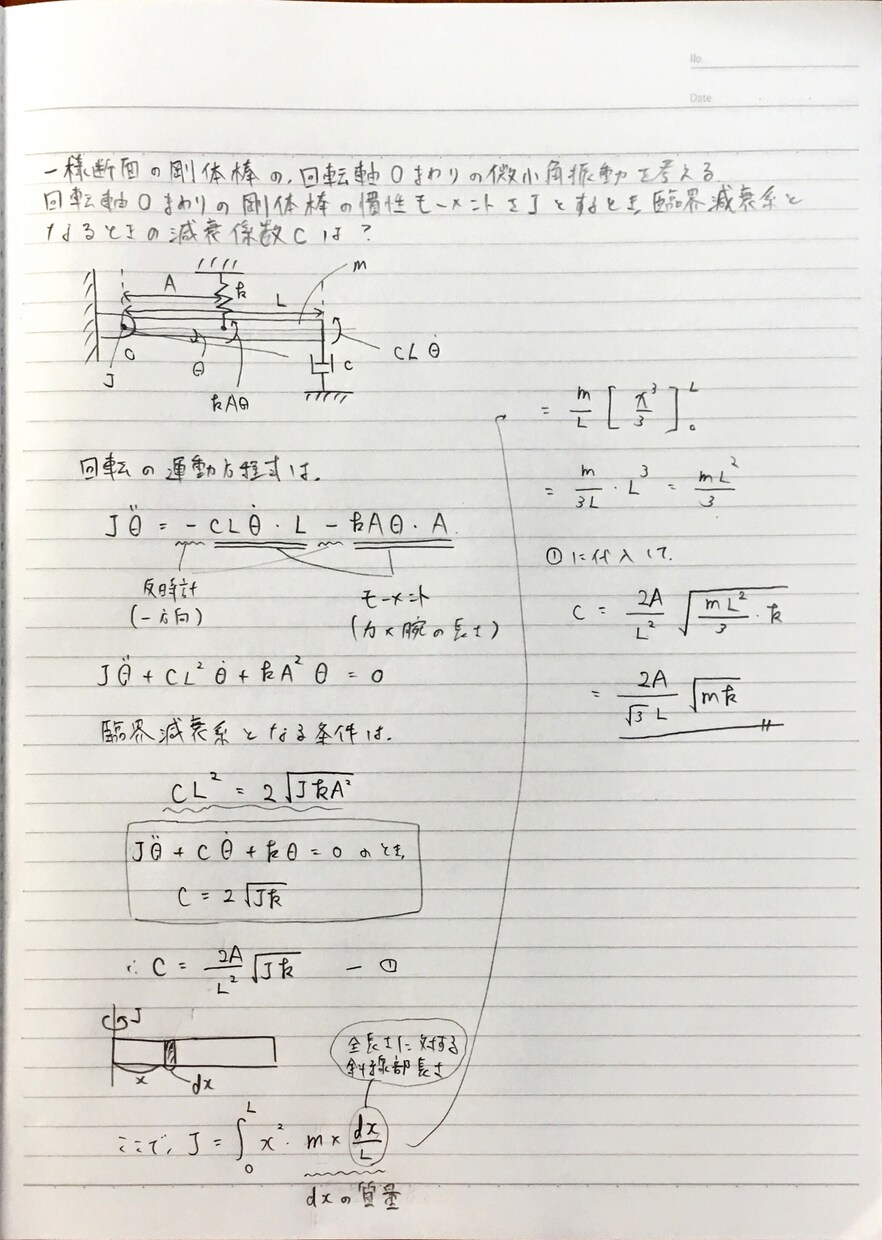 No.
Date
一様断面の剛体棒の、回転軸Oまわりの微小角振動を考える。
回転軸Oまわりの剛体棒の慣性モーメントをJとするとき、臨界減衰系と
なるときの減衰係数Cは?
A
k
m
L
O
θ
C
CLθ̇
J
kAθ
回転の運動方程式は、
Jθ̈ = -CLθ̇・L - kAθ・A
反時計
(-方向)
モーメント
(力×腕の長さ)
Jθ̈ + CL²θ̇ + kA²θ = 0
臨界減衰系となる条件は、
CL² = 2√(JkA²)
Jθ̈ + Cθ̇ + kθ = 0 のとき、
C = 2√(Jk)
∴ C = 2A/L² √(Jk) — ①
J
x
dx
全長さに対する
斜線部長さ
ここで、J = ∫₀ᴸ x²・m × dx/L
dxの質量
= m/L [x³/3]₀ᴸ
= m/3L・L³ = mL²/3
①に代入して、
C = 2A/L² √(mL²/3・k)
= 2A/(√3 L) √(mk)